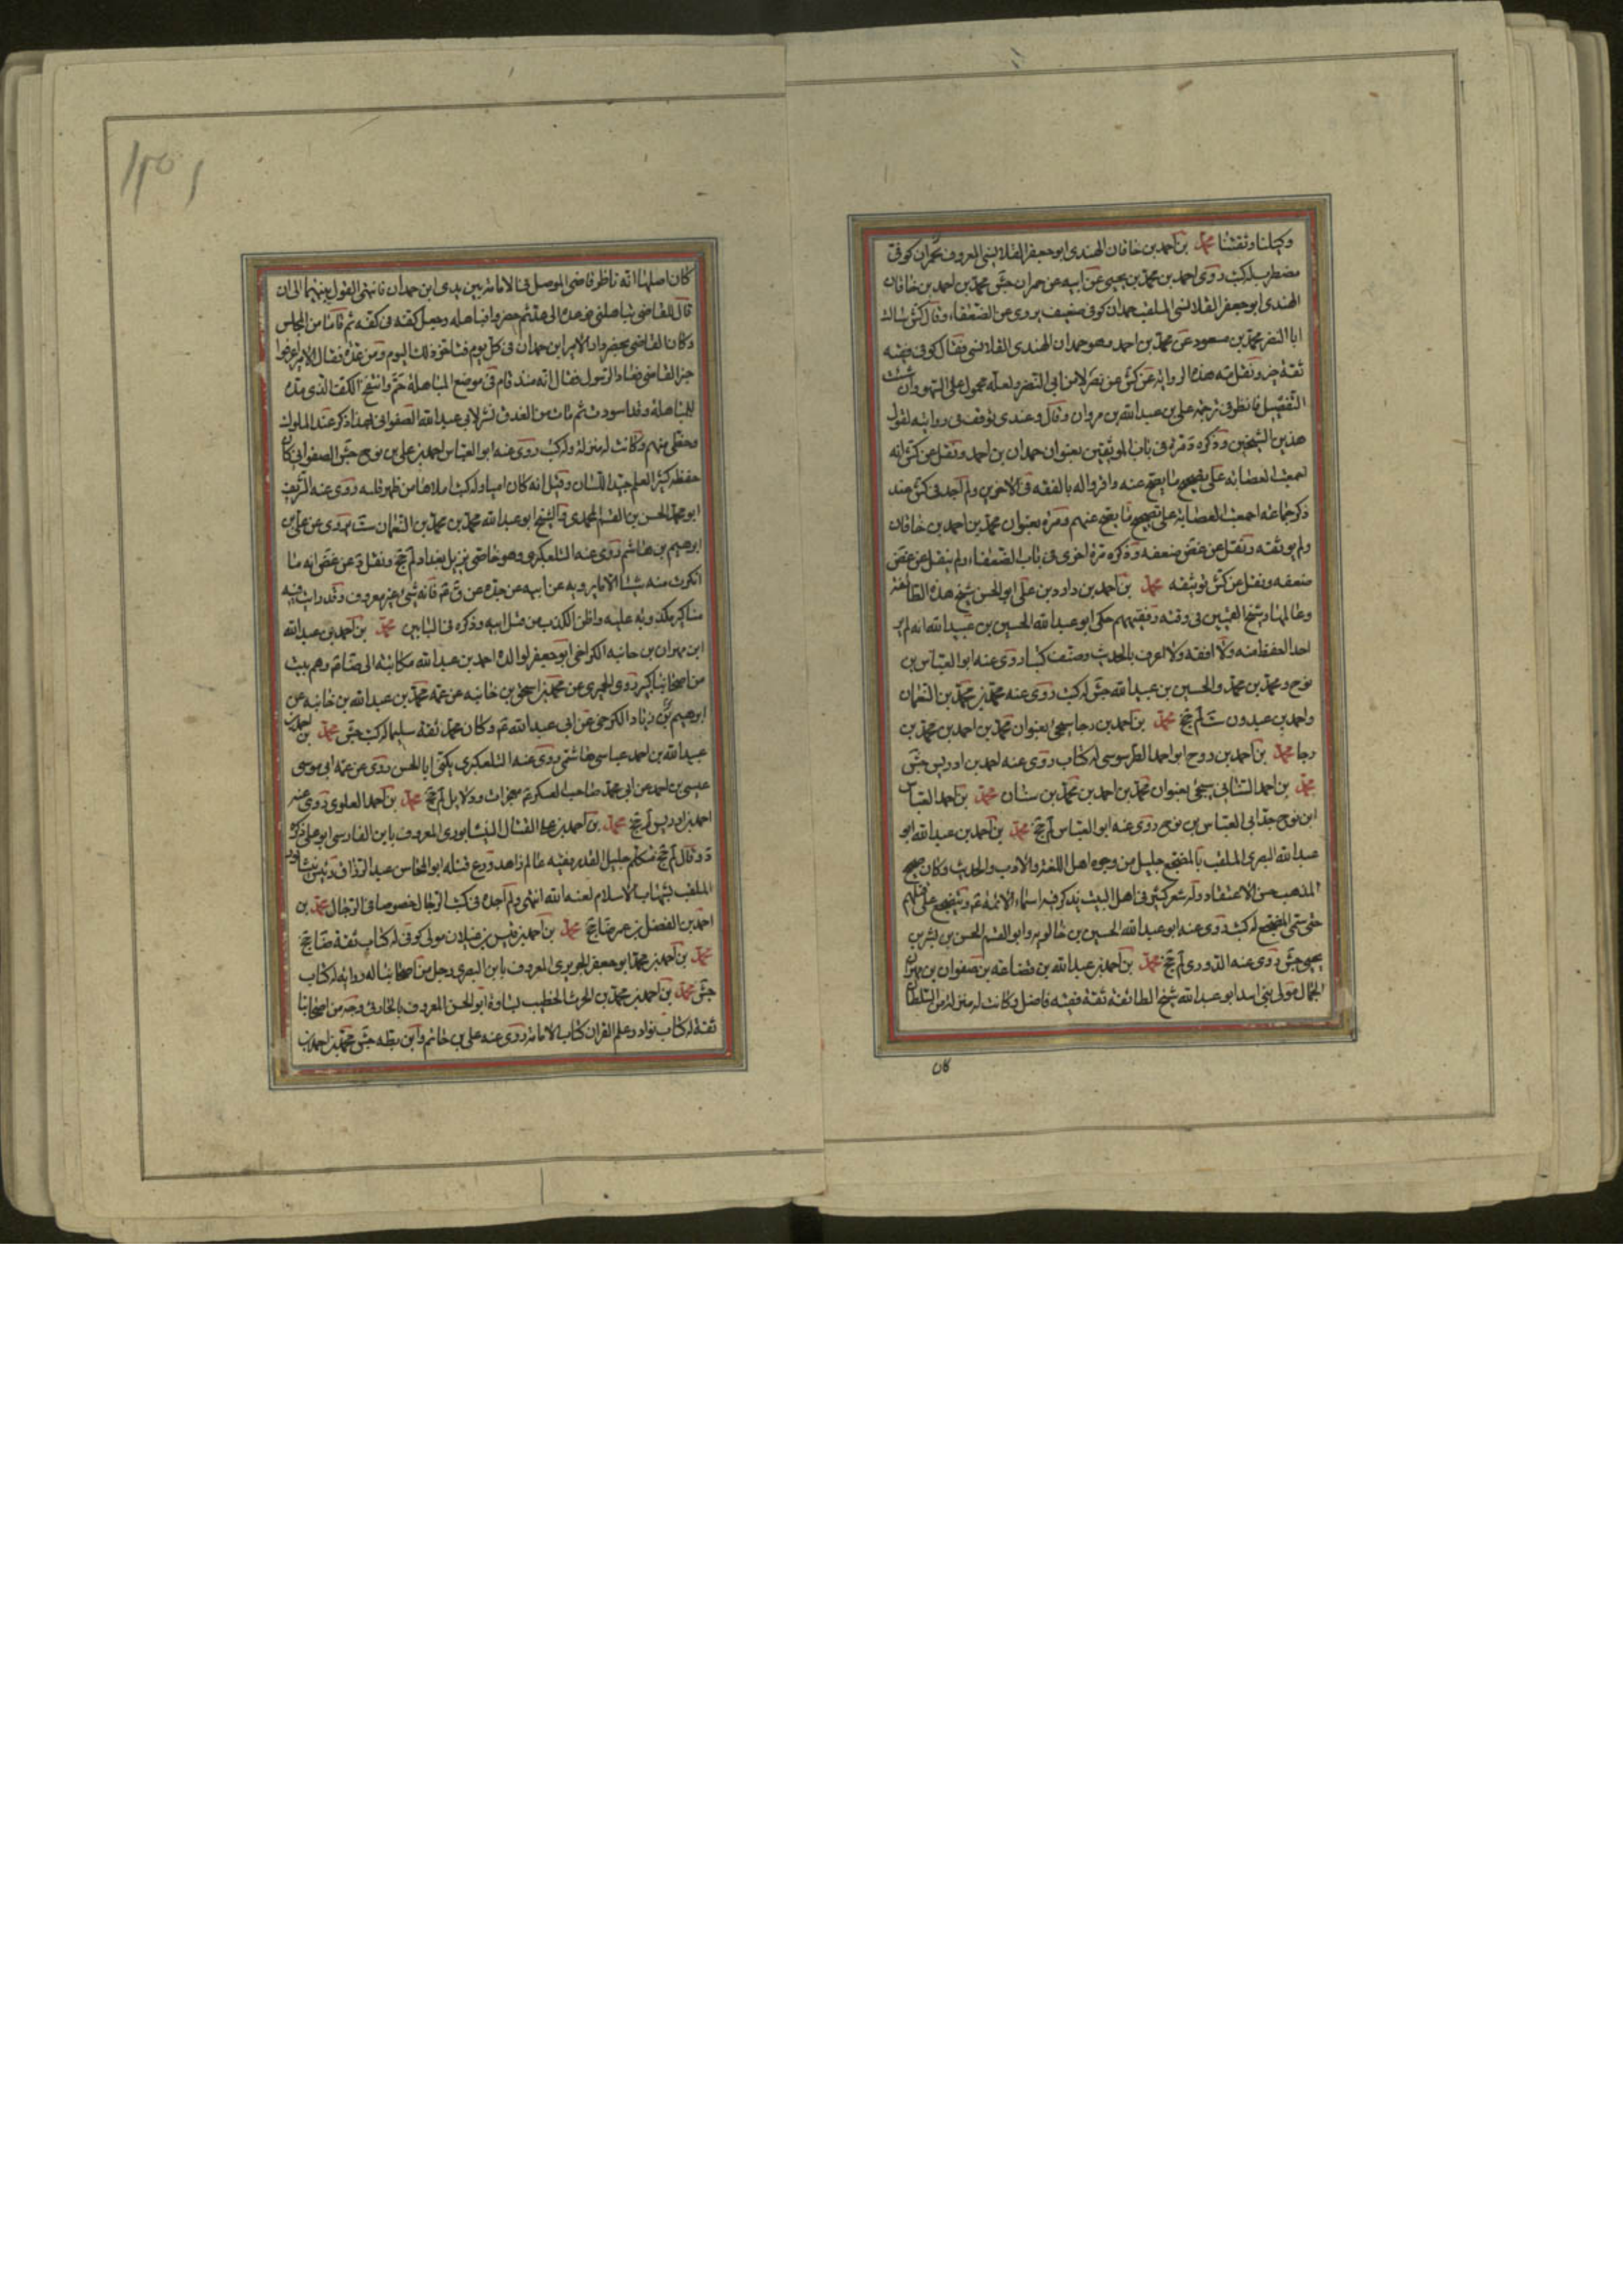 وكيلنا وثقتنا محمد بن احمد بن خاقان النهدى ابو جعفر القلانسى المعروف بحمران كوفى
مضطرب له كتب روى احمد بن محمد بن يحيى عن ابيه عن حمران جش محمد بن احمد بن خاقان
النهدى ابو جعفر القلانسى الملقب حمدان كوفى ضعيف يروى عن الضعفاء وقال كش سالت
ابا النضر محمد بن مسعود عن محمد بن احمد وهو حمدان النهدى القلانسى فقال كوفى فقيه
ثقة خير ونقل هذه الرواية عن كش عن نصر لا من ابى النضر ولعله محمول على السهو وان شئت
التفصيل فانظر فى ترجمة على بن عبد الله بن مروان وقال وعندى توقف فى روايته لقول
هذين الشيخين وذكره د مرة فى باب الموثقين بعنوان حمدان بن احمد ونقل عن كش انه
اجمعت العصابة على تصحيح ما يصح عنه واقروا له بالفقه فى الآخرين ولم اجد فى كش عند
ذكر جماعة اجمعت العصابة على تصحيح ما يصح عنهم ومرة بعنوان محمد بن احمد بن خاقان
ولم يوثقه ونقل عن غض ضعفه وذكره مرة اخرى فى باب الضعفاء ولم ينقل عن غض
ضعفه ونقل عن كش توثيقه محمد بن احمد بن داود بن على ابو الحسن شيخ هذه الطائفة
وعالمها وشيخ القميين فى وقته وفقيههم حكى ابو عبد الله الحسين بن عبيد الله انه لم ير
احدا احفظ منه ولا افقه ولا اعرف بالحديث وصنف كتبا روى عنه ابو العباس بن
نوح ومحمد بن محمد والحسين بن عبيد الله جش له كتب روى عنه محمد بن محمد بن النعمان
واحمد بن عبدون ست لم جخ محمد بن احمد بن رجا سيجئ بعنوان محمد بن احمد بن محمد بن
رجا محمد بن احمد بن روح ابو احمد الطرسوسى له كتاب روى عنه احمد بن ادريس جش
محمد بن احمد الشاذى سيجئ بعنوان محمد بن احمد بن محمد بن سنان محمد بن احمد العباس
ابن نوح جد ابى العباس بن نوح روى عنه ابو العباس لم جخ محمد بن احمد بن عبد الله ابو
عبد الله البصرى الملقب بالمفجع جليل من وجوه اهل اللغة والادب والحديث وكان صحيح
المذهب حسن الاعتقاد وله شعر كثير فى اهل البيت يذكر فيه اسماء الائمة ع ويتفجع على قتلهم
حتى سمى المفجع له كتب روى عنه ابو عبد الله الحسين بن خالويه وابو القسم الحسن بن بشر بن
يحيى جش روى عنه الدورى لم جخ محمد بن احمد بن عبد الله بن قضاعة بن صفوان بن مهران
الجمال مولى بنى اسد ابو عبد الله شيخ الطائفة ثقة فقيه فاضل وكانت له منزلة من السلطان
كان
كان اصلها انه ناظر قاضى الموصل فى الامامة بين يدى ابن حمدان فانتهى القول بينهما الى ان
قال للقاضى تباهلنى فوعده الى غد ثم حضروا فباهله وجعل كفه فى كفه ثم قاما من المجلس
وكان القاضى يحضر دار الامير ابن حمدان فى كل يوم فتاخر ذلك اليوم ومن غده فقال الامير اعرفوا
خبر القاضى فعاد الرسول فقال انه منذ قام فى موضع المباهلة حم وانتفخ الكف الذى مده
للمباهلة وقد اسودت ثم مات من الغد فانتشر لابى عبد الله الصفوانى بهذا ذكر عند الملوك
وحظى منهم وكانت له منزلة وله كتب روى عنه ابو العباس احمد بن على بن نوح جش الصفوانى كان
حفظه كثير العلم جيد اللسان وقيل انه كان اميا وله كتب املاها من ظهر قلبه روى عنه الشريف
ابو محمد الحسن بن القسم المحمدى والشيخ ابو عبد الله محمد بن محمد بن النعمان ست يروى عن على بن
ابرهيم بن هاشم روى عنه التلعكبرى وهو خاصى نزيل بغداد لم جخ ونقل د عن غض انه ما
انكرت منه شيئا الا ما يرويه عن ابيه عن جده عن ق ع فانه شئ غير معروف وقد رايت فيه
مناكير مكذوبة عليه واظن الكذب من قبل ابيه وذكره فى البابين محمد بن احمد بن عبد الله
ابن مهران بن خانبه الكرخى ابو جعفر لوالده احمد بن عبد الله مكاتبة الى ضا ع وهم بيت
من اصحابنا كبير روى الحميرى عن محمد بن اسحق بن خانبه عن عمه محمد بن عبد الله بن خانبه عن
ابرهيم بن زياد الكرخى عن ابى عبد الله ع وكان محمد ثقة سليما له كتب جش محمد بن احمد بن
عبيد الله بن احمد عباسى هاشمى روى عنه التلعكبرى يكنى ابا الحسن روى عن عمه ابى موسى
عيسى بن احمد عن ابى محمد صاحب العسكر ع معجزات ودلايل لم جخ محمد بن احمد العلوى روى عنه
احمد بن ادريس لم جخ محمد بن احمد بن على الفتال النيشابورى المعروف بابن الفارسى ابو على ذكره
د وقال لم جخ متكلم جليل القدر فقيه عالم زاهد ورع قتله ابو المحاسن عبد الرزاق رئيس نيشابور
الملقب بشهاب الاسلام لعنه الله انتهى ولم اجده فى كتب الرجال خصوصا فى الرجال محمد بن
احمد بن الفضل بن عمر ضا جخ محمد بن احمد بن قيس بن غيلان مولى كوفى له كتاب ثقة ضا جخ
محمد بن احمد بن محمد ابو جعفر الجريرى المعروف بابن البصرى رجل من اصحابنا له رواية له كتاب
جش محمد بن احمد بن محمد بن الحرث الخطيب بساوة ابو الحسن المعروف بالحارثى وجه من اصحابنا
ثقة له كتاب نوادر علم القران كتاب الامامة روى عنه على بن حاتم وابن بطة جش محمد بن احمد بن